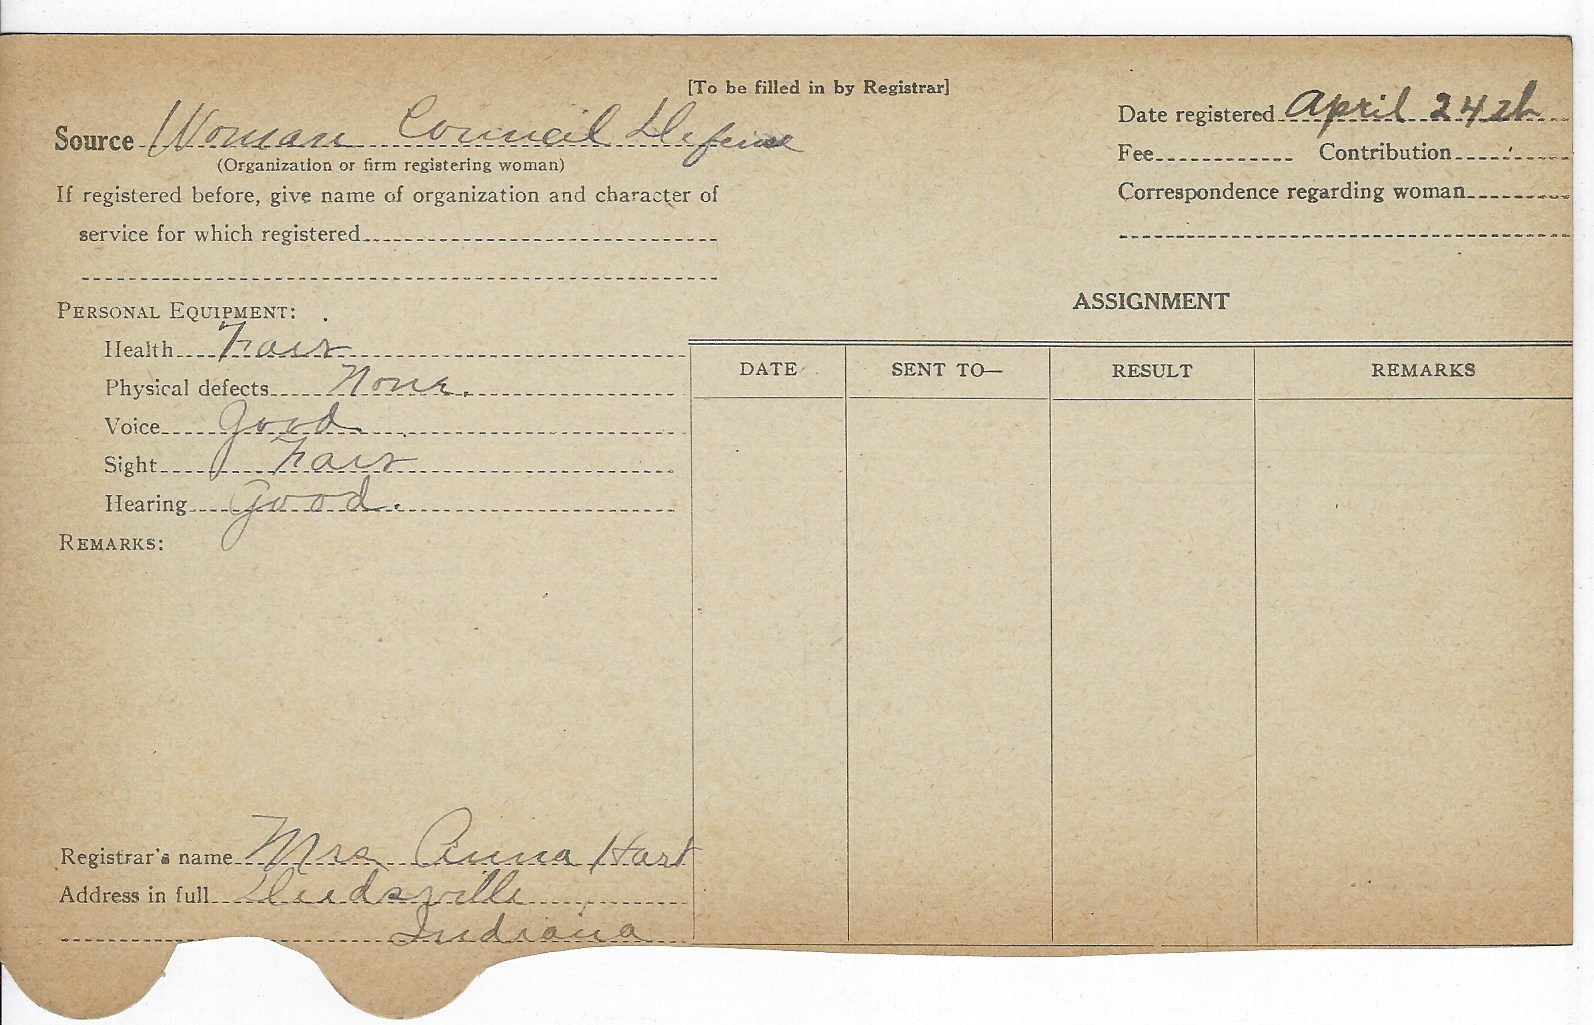 [To be filled in by Registrar]
Source Woman Council Defense
(Organization or firm registering woman)
If registered before, give name of organization and character of
service for which registered
PERSONAL EQUIPMENT:
Health Fair
Physical defects None.
Voice Good
Sight Fair
Hearing Good.
REMARKS:
Registrar's name Mrs Anna Hart
Address in full Deedsville
Indiana
Date registered April 24th
Fee Contribution
Correspondence regarding woman
ASSIGNMENT
DATE SENT TO— RESULT REMARKS